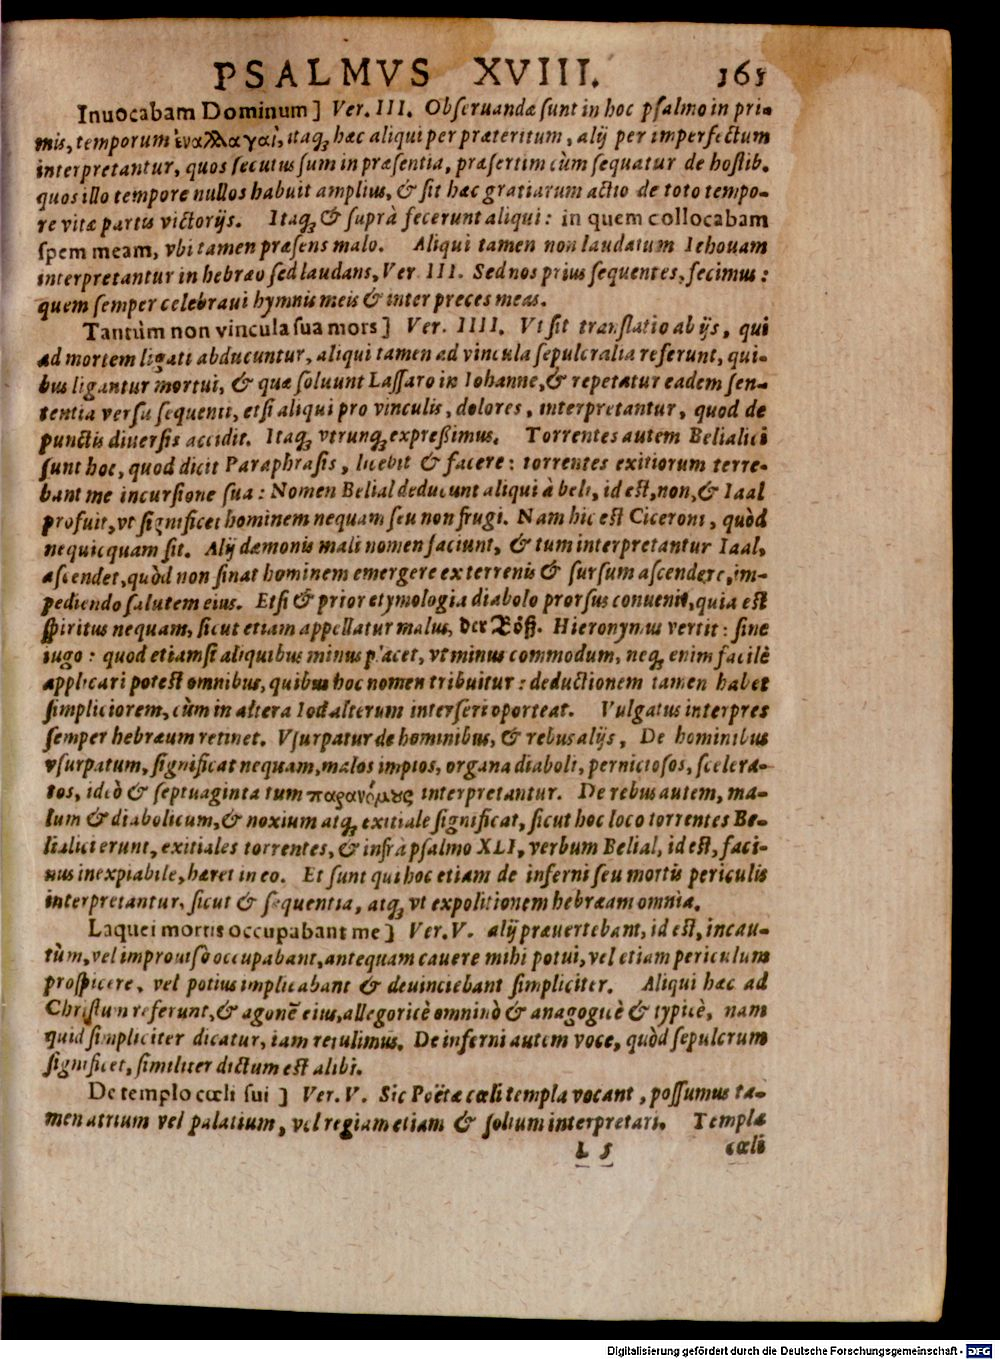 PSALMVS XVIII. 161
Inuocabam Dominum] Ver. III. Obſeruandæ ſunt in hoc pſalmo in pri-
mis, temporum ἐναλλαγαί, itaq; hæc aliqui per præteritum, alij per imperfectum
interpretantur, quos ſecutus ſum in præſentia, præſertim cùm ſequatur de hoſtib.
quos illo tempore nullos habuit amplius, & ſit hæc gratiarum actio de toto tempo-
re vitæ partis victorijs. Itaq; & ſuprà fecerunt aliqui: in quem collocabam
ſpem meam, vbi tamen præſens malo. Aliqui tamen non laudatum Iehouam
interpretantur in hebræo ſed laudans, Ver. III. Sed nos prius ſequentes, fecimus:
quem ſemper celebraui hymnis meis & inter preces meas.
Tantùm non vincula ſua mors] Ver. IIII. Vt ſit translatio ab ijs, qui
ad mortem ligati abducuntur, aliqui tamen ad vincula ſepulcralia referunt, qui-
bus ligantur mortui, & quæ ſoluunt Laſſaro in Iohanne, & repetatur eadem ſen-
tentia verſu ſequenti, etſi aliqui pro vinculis, dolores, interpretantur, quod de
punctis diuerſis accidit. Itaq; vtrunq; expreßimus. Torrentes autem Belialici
ſunt hoc, quod dicit Paraphraſis, licebit & facere: torrentes exitiorum terre-
bant me incurſione ſua: Nomen Belial deducunt aliqui à beli, id eſt, non, & Iaal
profuit, vt ſignificet hominem nequam ſeu non frugi. Nam hic eſt Ciceroni, quòd
nequicquam ſit. Alij dæmonis mali nomen faciunt, & tum interpretantur Iaal,
aſcendet, quòd non ſinat hominem emergere ex terrenis & ſurſum aſcendere, im-
pediendo ſalutem eius. Etſi & prior etymologia diabolo prorſus conuenit, quia eſt
ſpiritus nequam, ſicut etiam appellatur malus, der Böß. Hieronymus vertit: ſine
iugo: quod etiamſi aliquibus minus placet, vt minus commodum, neq; enim facilè
applicari poteſt omnibus, quibus hoc nomen tribuitur: deductionem tamen habet
ſimpliciorem, cùm in altera Iod alterum interſeri oporteat. Vulgatus interpres
ſemper hebræum retinet. Vſurpatur de hominibus, & rebus alijs, De hominibus
vſurpatum, ſignificat nequam, malos impios, organa diaboli, pernicioſos, ſcelera-
tos, ideò & ſeptuaginta tum παρανόμους interpretantur. De rebus autem, ma-
lum & diabolicum, & noxium atq; exitiale ſignificat, ſicut hoc loco torrentes Be-
lialici erunt, exitiales torrentes, & infrà pſalmo XLI, verbum Belial, id eſt, faci-
nus inexpiabile, hæret in eo. Et ſunt qui hoc etiam de inferni ſeu mortis periculis
interpretantur, ſicut & ſequentia, atq; vt expolitionem hebræam omnia.
Laquei mortis occupabant me] Ver. V. alij præuertebant, id eſt, incau-
tùm, vel improuiſò occupabant, antequam cauere mihi potui, vel etiam periculum
proſpicere, vel potius implicabant & deuinciebant ſimpliciter. Aliqui hæc ad
Chriſtum referunt, & agonē eius, allegoricè omninò & anagogicè & typicè, nam
quid ſimpliciter dicatur, iam retulimus. De inferni autem voce, quòd ſepulcrum
ſignificet, ſimiliter dictum eſt alibi.
De templo cœli ſui] Ver. V. Sic Poëtæ cœli templa vocant, poſſumus ta-
men atrium vel palatium, vel regiam etiam & ſolium interpretari. Templa
L 5 cœli
Digitalisierung gefördert durch die Deutsche Forschungsgemeinschaft - DFG